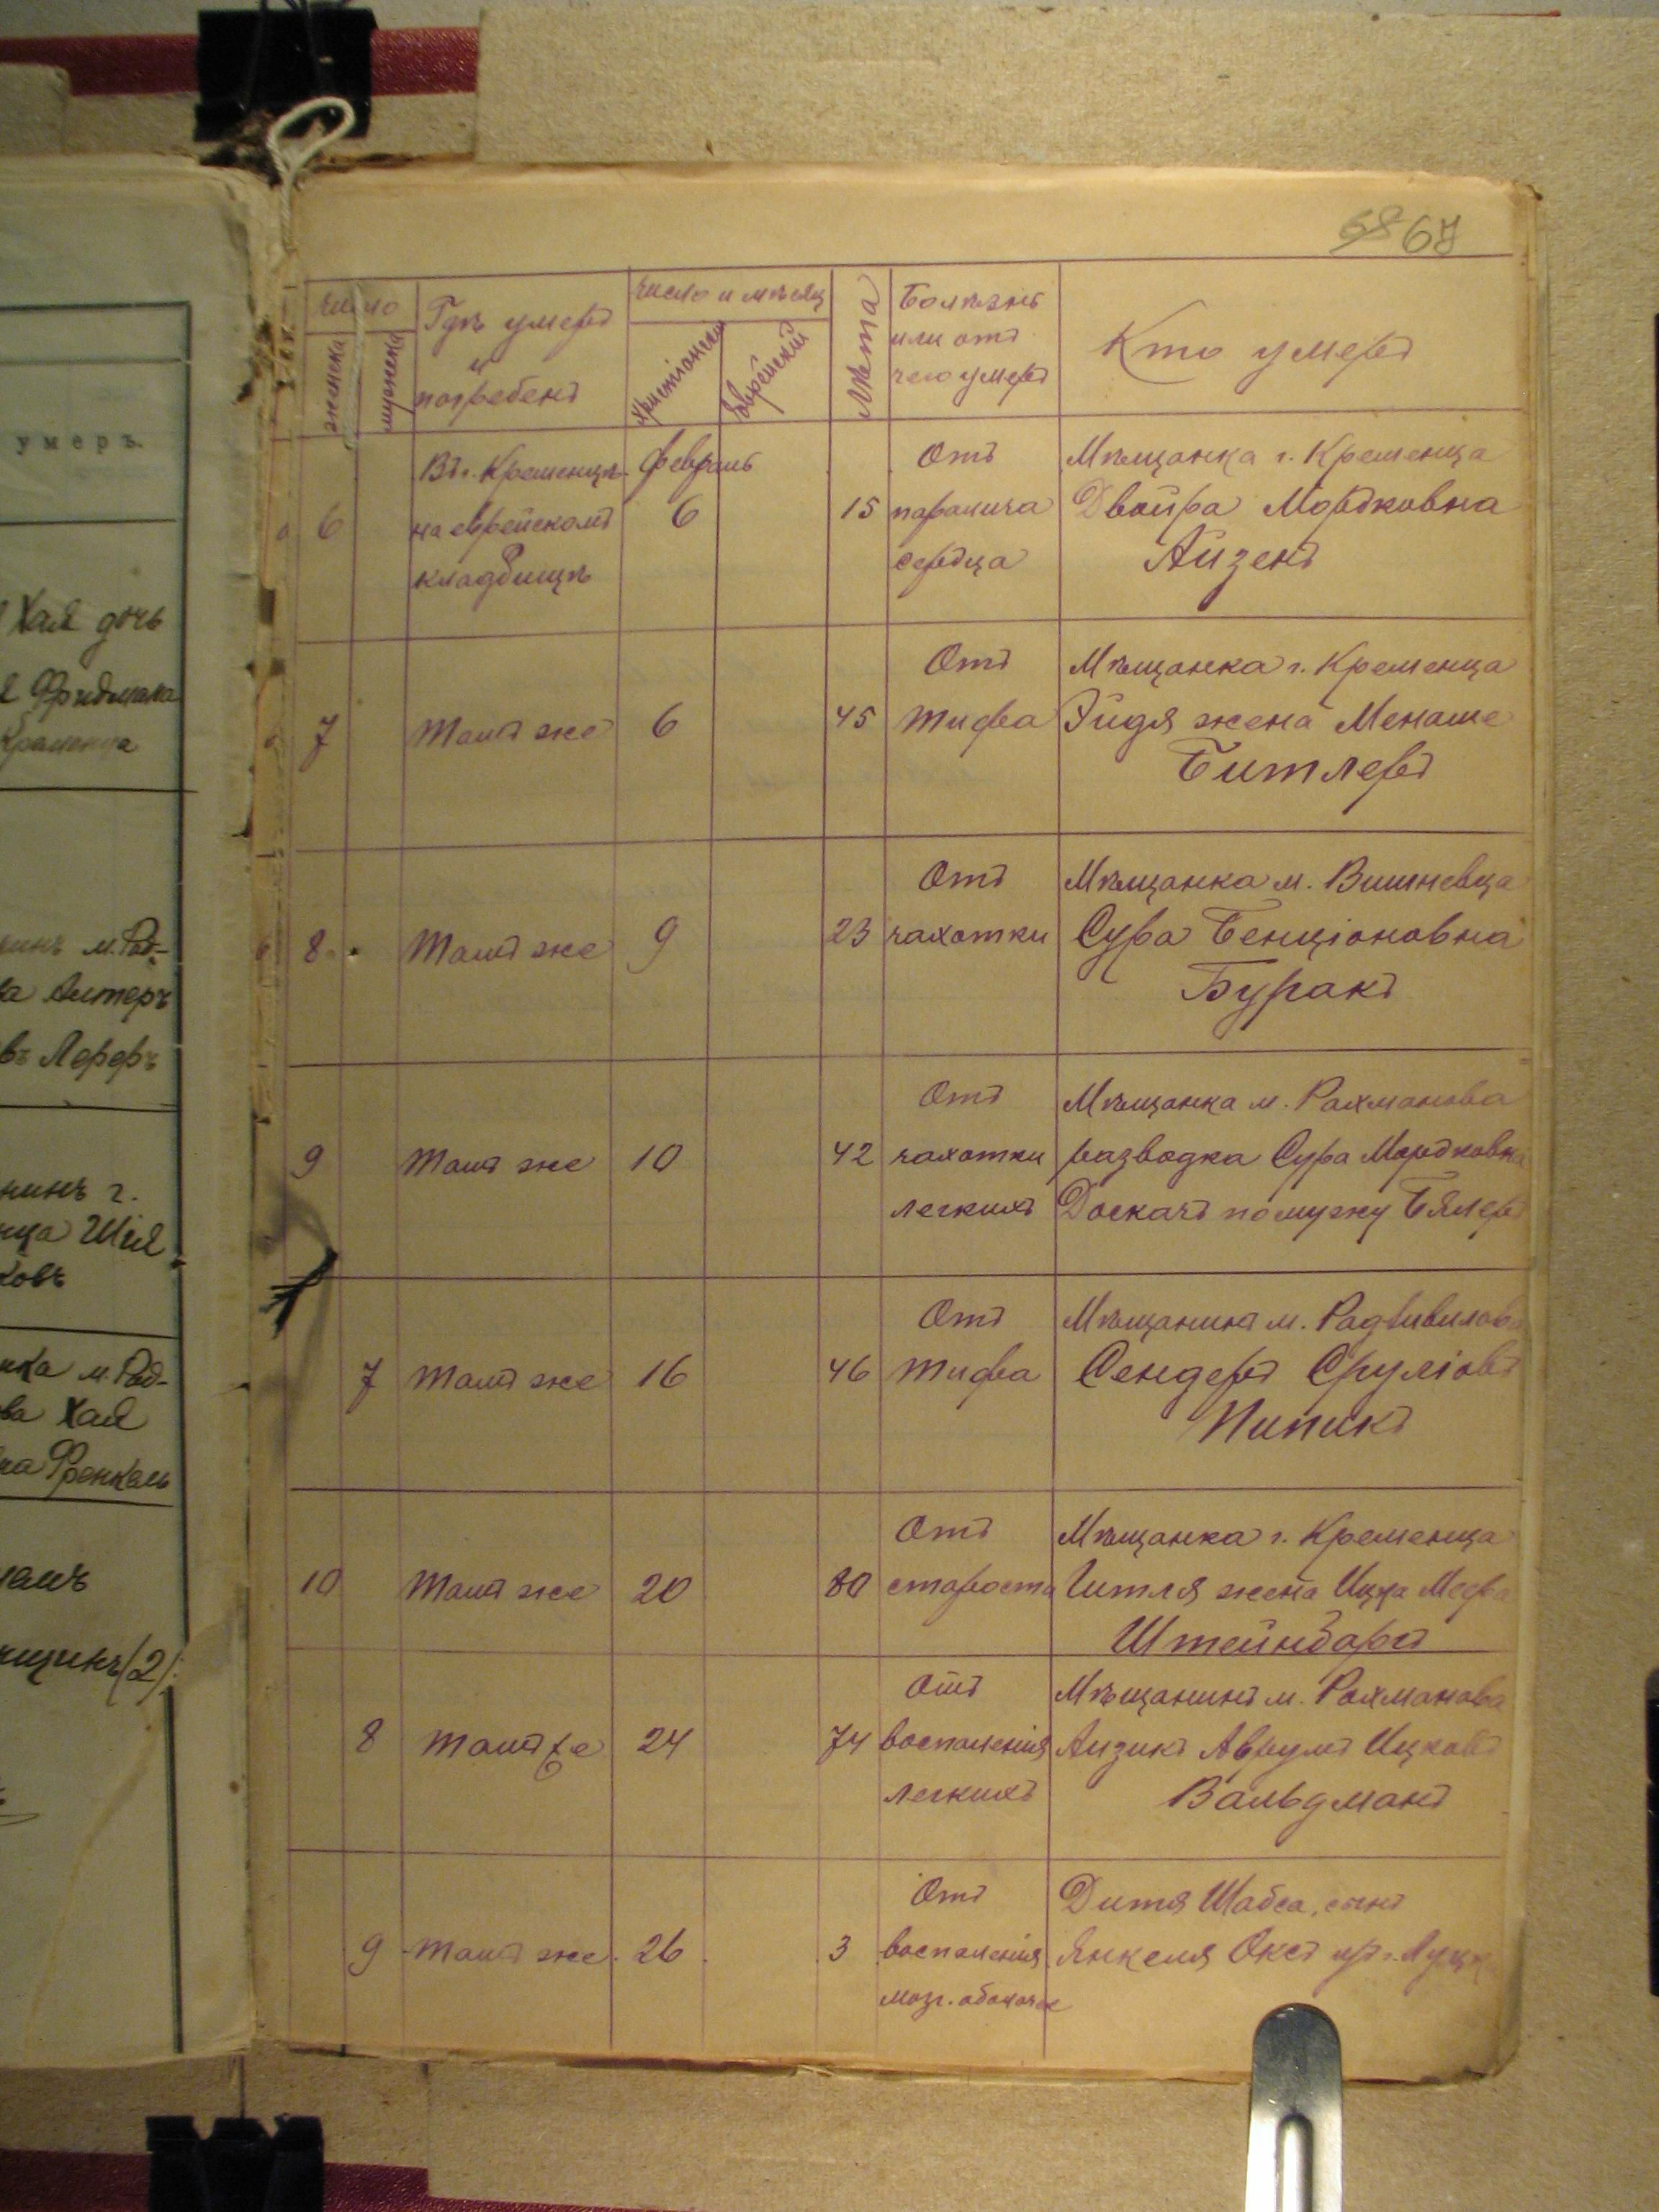 68 67
число
женска
мужеска
Гдѣ умеръ
и
погребенъ
число и мѣсяц
христіански
Еврейскій
Лѣта
Болѣзнь
или отъ
чего умеръ
Кто умеръ
6
Въ г. Кременцѣ
на еврейскомъ
кладбищѣ
Февраль
6
15
Отъ
паралича
сердца
Мѣщанка г. Кременца
Двойра Мордковна
Айзенъ
7
Тамъ же
6
45
Отъ
тифа
Мѣщанка г. Кременца
Эйдя жена Менаше
Битлеръ
8
Тамъ же
9
23
Отъ
чахотки
Мѣщанка м. Вишневца
Сура Бенціоновна
Буракъ
9
Тамъ же
10
42
Отъ
чахотки
легкихъ
Мѣщанка м. Рахманова
разводка Сура Мордковна
Доскачъ по мужу Бялеръ
7
Тамъ же
16
46
Отъ
тифа
Мѣщанинъ м. Радзивилова
Сендеръ Сруліовъ
Пипикъ
10
Тамъ же
20
80
Отъ
старости
Мѣщанка г. Кременца
Гитля жена Ицка Меера
Штейнбаргъ
8
Тамъ же
24
74
Отъ
воспаленія
легкихъ
Мѣщанинъ м. Рахманова
Аизикъ Аврумъ Ицковъ
Вальдманъ
9
Тамъ же
26
3
Отъ
воспаленія
мозг. оболочек
Дитя Шабса, сынъ
Янкеля Оксъ г. Луцк
умеръ.
Хая дочь
Фридмана
Кременца
м. Рад-
Алтеръ
Лереръ
г.
Шія
м. Рад-
Хая
Френкель
(2)